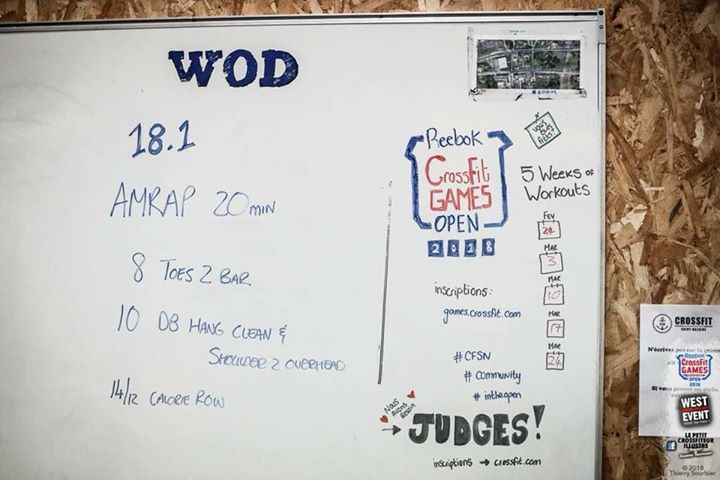 WOD
18.1
AMRAP 20 MIN
8 TOES 2 BAR
10 DB HANG CLEAN &
SHOULDER 2 OVERHEAD
14/12 CALORIE ROW
600M
Reebok
CrossFit
GAMES
OPEN
2018
VOUS
ÊTES
5 WEEKS OF
WORKOUTS
FEV
24
MAR
3
MAR
10
MAR
17
MAR
24
inscriptions:
games.crossfit.com
#CFSN
# community
# intheopen
NOUS
AVONS
BESOIN
JUDGES!
inscriptions → crossfit.com
CROSSFIT
SAINT-NAZAIRE
N'écrivez pas sur la
Reebok
CrossFit
GAMES
OPEN
2018
WEST
EVENT
LE PETIT
CROSSFITEUR
ILLUSTRE
© 2018
Thierry Sourbier